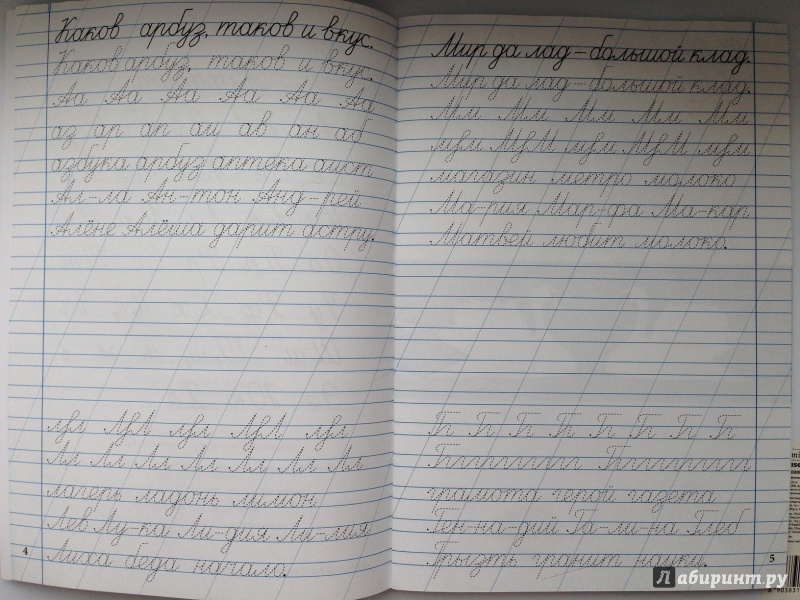 Каков арбуз, таков и вкус.
Каков арбуз, таков и вкус.
Аа Аа Аа Аа Аа Аа
аз ар ап аи ав ан аб
азбука арбуз аптека аист
Ал-ла Ан-тон Анд-рей
Алёне Алёша дарит астру.
лл Ал
Лл Лл Лл Лл Лл Лл Лл
лагерь ладонь лимон
Лев Лу-ка Ли-дия Ли-лия
Лиха беда начало.
4
Мир да лад – большой клад.
Мир да лад – большой клад.
Мм Мм Мм Мм Мм
магазин метро молоко
Ма-рия Мар-фа Ма-кар
Матвей любит молоко.
грамота герой газета
Ген-на-дий Га-ли-на Глеб
Грызть гранит науки.
5
Лабиринт.ру